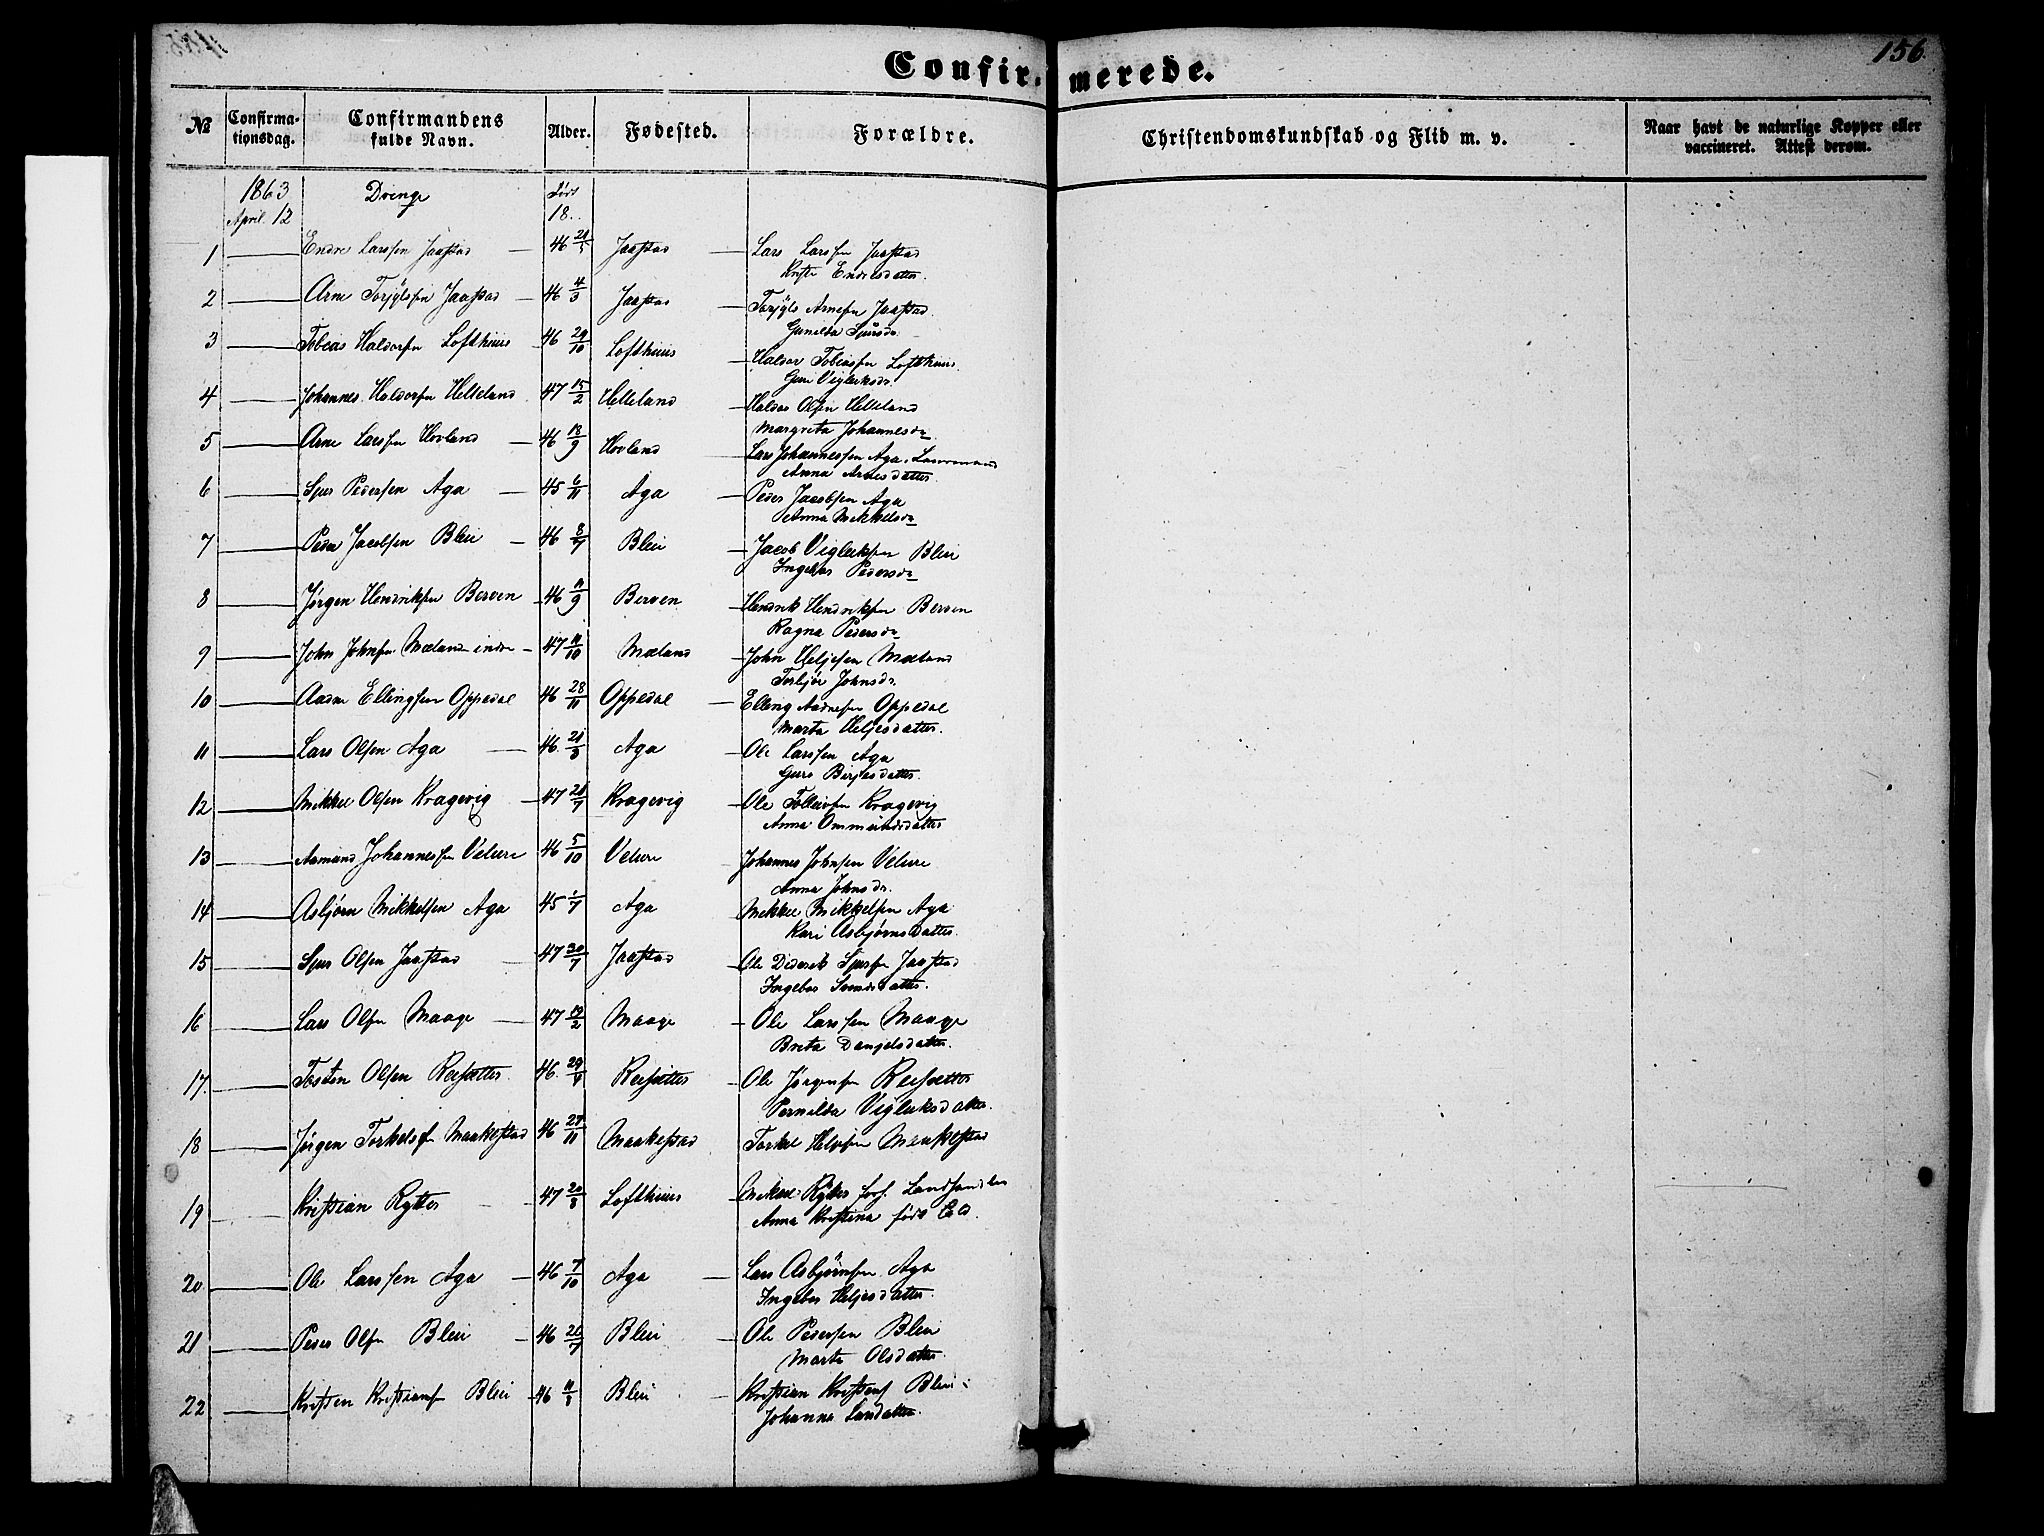 156.
Confirmerede.
№ Confirmationsdag. Confirmandens fulde Navn. Alder. Fødested. Forældre. Christendomskundskab og Flid m. v. Naar havt de naturlige Kopper eller vaccineret. Attest derom.
1863 Drenge Født
April. 12 18..
1 Endre Larssen Jaastad 46 Jaastad Lars Larssen Jaastad
Endresdatter.
2 Arne Torjylssen Jaastad 46 4/3 Jaastad Torjyls Arnesen Jaastad
Gunilda Sjursdr.
3 Tobias Haldorsen Lofthuus 46 29/10 Lofthuus Haldor Tobiassen Lofthuus
Guri Vigleiksdr.
4 Johannes Haldorsen Helleland 47 15/2 Helleland Haldor Olsen Helleland
Margreta Johannesdr
5 Arne Larssen Hovland 46 18/9 Hovland Lars Johannessen Aga,
Anna Arnesdatter
6 Sjur Pedersen Aga 45 6/11 Aga Peder Jacobsen Aga
Anna Mikkelsdr
7 Peder Jacobsen Bleie 46 8/7 Bleie Jacob Vigleiksen Bleie
Ingebor Pedersdr
8 Jørgen Hendriksen Berven 46 11/9 Berven Hendrik Hendriksen Berven
Ragna Pedersdr
9 John Johnsen Mæland indre 47 11/10 Mæland John Heljesen Mæland
Torbjør Johnsdr.
10 Aadne Ellingsen Oppedal 46 28/11 Oppedal Elling Aadnesen Oppedal
Marta Heljesdatter.
11 Lars Olsen Aga 46 Aga Ole Larssen Aga
Guro Birjesdatter.
12 Mikkel Olsen Kragevig 47 21/7 Kragevig Ole Tolleivsen Kragevig
Anna Ommundsdatter
13 Aamund Johannessen Velure 46 5/10 Velure Johannes Johnsen Velure
Anna Johnsdr.
14 Asbjørn Mikkelsen Aga 45 1/7 Aga Mikkel Mikkelsen Aga
Kari Asbjørnsdatter.
15 Sjur Olsen Jaastad 47 30/7 Jaastad Ole Diderik Sjursen Jaastad
Ingebor Svendsdatter.
16 Lars Olsen Maage 47 19/2 Maage Ole Larssen Maage
Breta Danjelsdatter.
17. Tosten Olsen Reisæter 46 Reisæter Ole Jørgensen Reisæter
Pernilda Vigleiksdatter.
18 Jørgen Torkelsen Maakestad 46 27/11 Maakestad Torkel Helgesen Maakestad
19 Kristian Rytter 47 Lofthuus Mikael Rytter forh. Landhandler
Anna Kristina født
20 Ole Larssen Aga 46 7/10 Aga Lars Asbjørnsen Aga
Ingebor Heljesdatter.
21 Peder Olsen Bleie 46 26/7 Bleie Ole Pedersen Bleie
Marta Olsdatter.
22 Kristen Kristiansen Bleie 46 Bleie Kristian Kristens Bleie
Johanna Larsdatter.